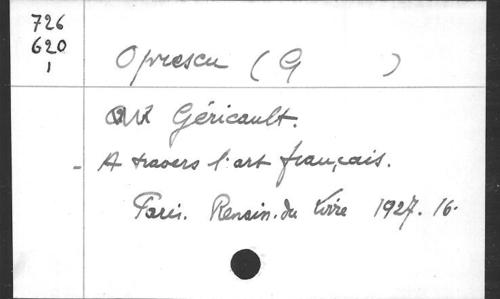 726
620
1
Oprescu (G )
Géricault.
- A travers l'art français.
Paris. Renais. du Livre 1927. 16.